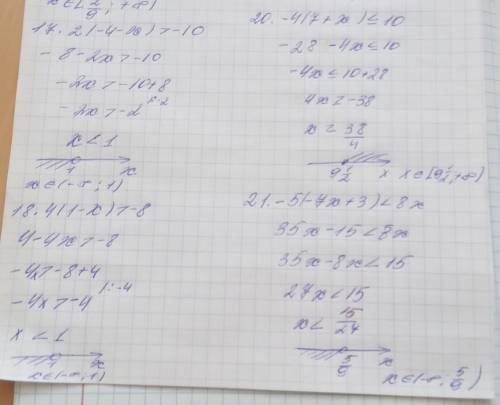 x∈[2/9; +∞)
17. 2(-4-x)>-10
-8-2x>-10
-2x>-10+8
-2x>-2 |:-2
x<1
1 x
x∈(-∞; 1)
18. 4(1-x)>-8
4-4x>-8
-4x>-8+4
-4x>-4 |:-4
x<1
1 x
x∈(-∞; 1)
20. -4(7+x)≤10
-28-4x≤10
-4x≤10+28
4x≥-38
x≥38/4
9 1/2 x x∈[9 1/2; +∞)
21. -5(-7x+3)<8x
35x-15<8x
35x-8x<15
27x<15
x<15/27
5/9 x
x∈(-∞; 5/9)